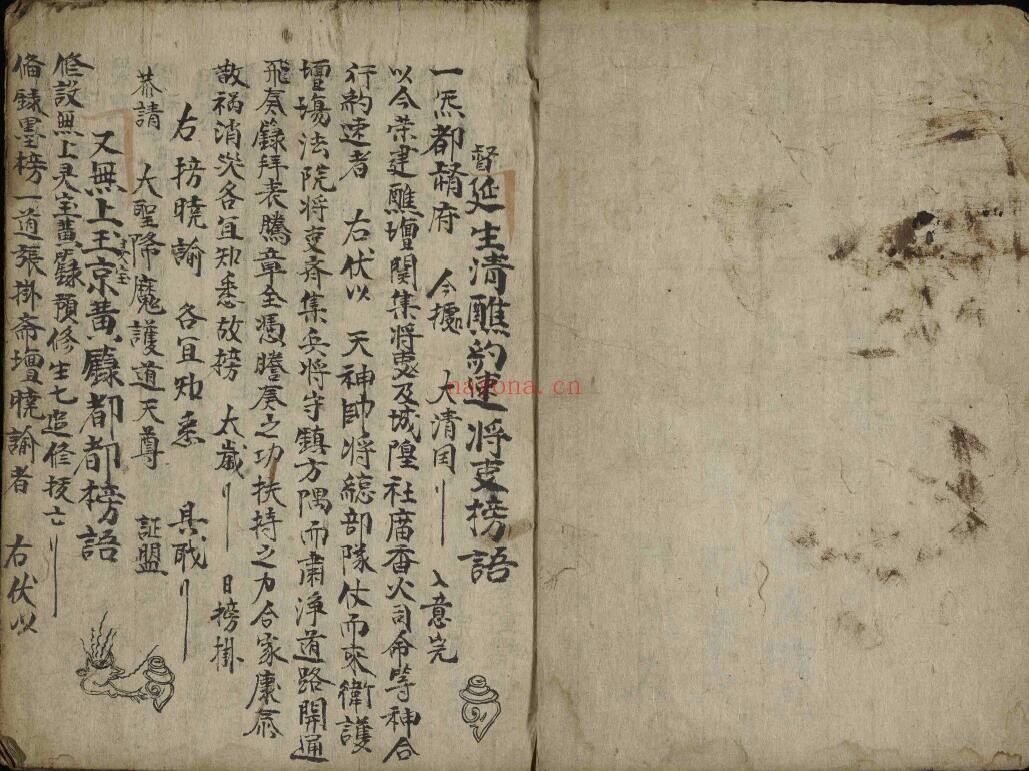 督延生清醮約束将吏榜語
一炁都督府 今據 大清囯 入意完
以今荣建醮壇関集将吏及城隍社庙香火司命等神合
行約速者 右伏以 天神帥将總部隊仗而来衛護
壇塲法院将吏齐集兵将守鎮方隅而肃淨道路開通
飛奏籙拜表騰章全憑謄奏之功扶持之力合家康泰
殃祸消灾各宜知悉故榜 太歲 日榜掛
右榜曉諭 各宜知悉 具戝
恭請 大聖降魔護道天尊 証盟
又無上玉京黄籙都都榜語
修設無上灵宝黄籙預修生七追修拔亡
俻錄墨榜一道張掛斋壇曉諭者 右伏以
nayona.cn